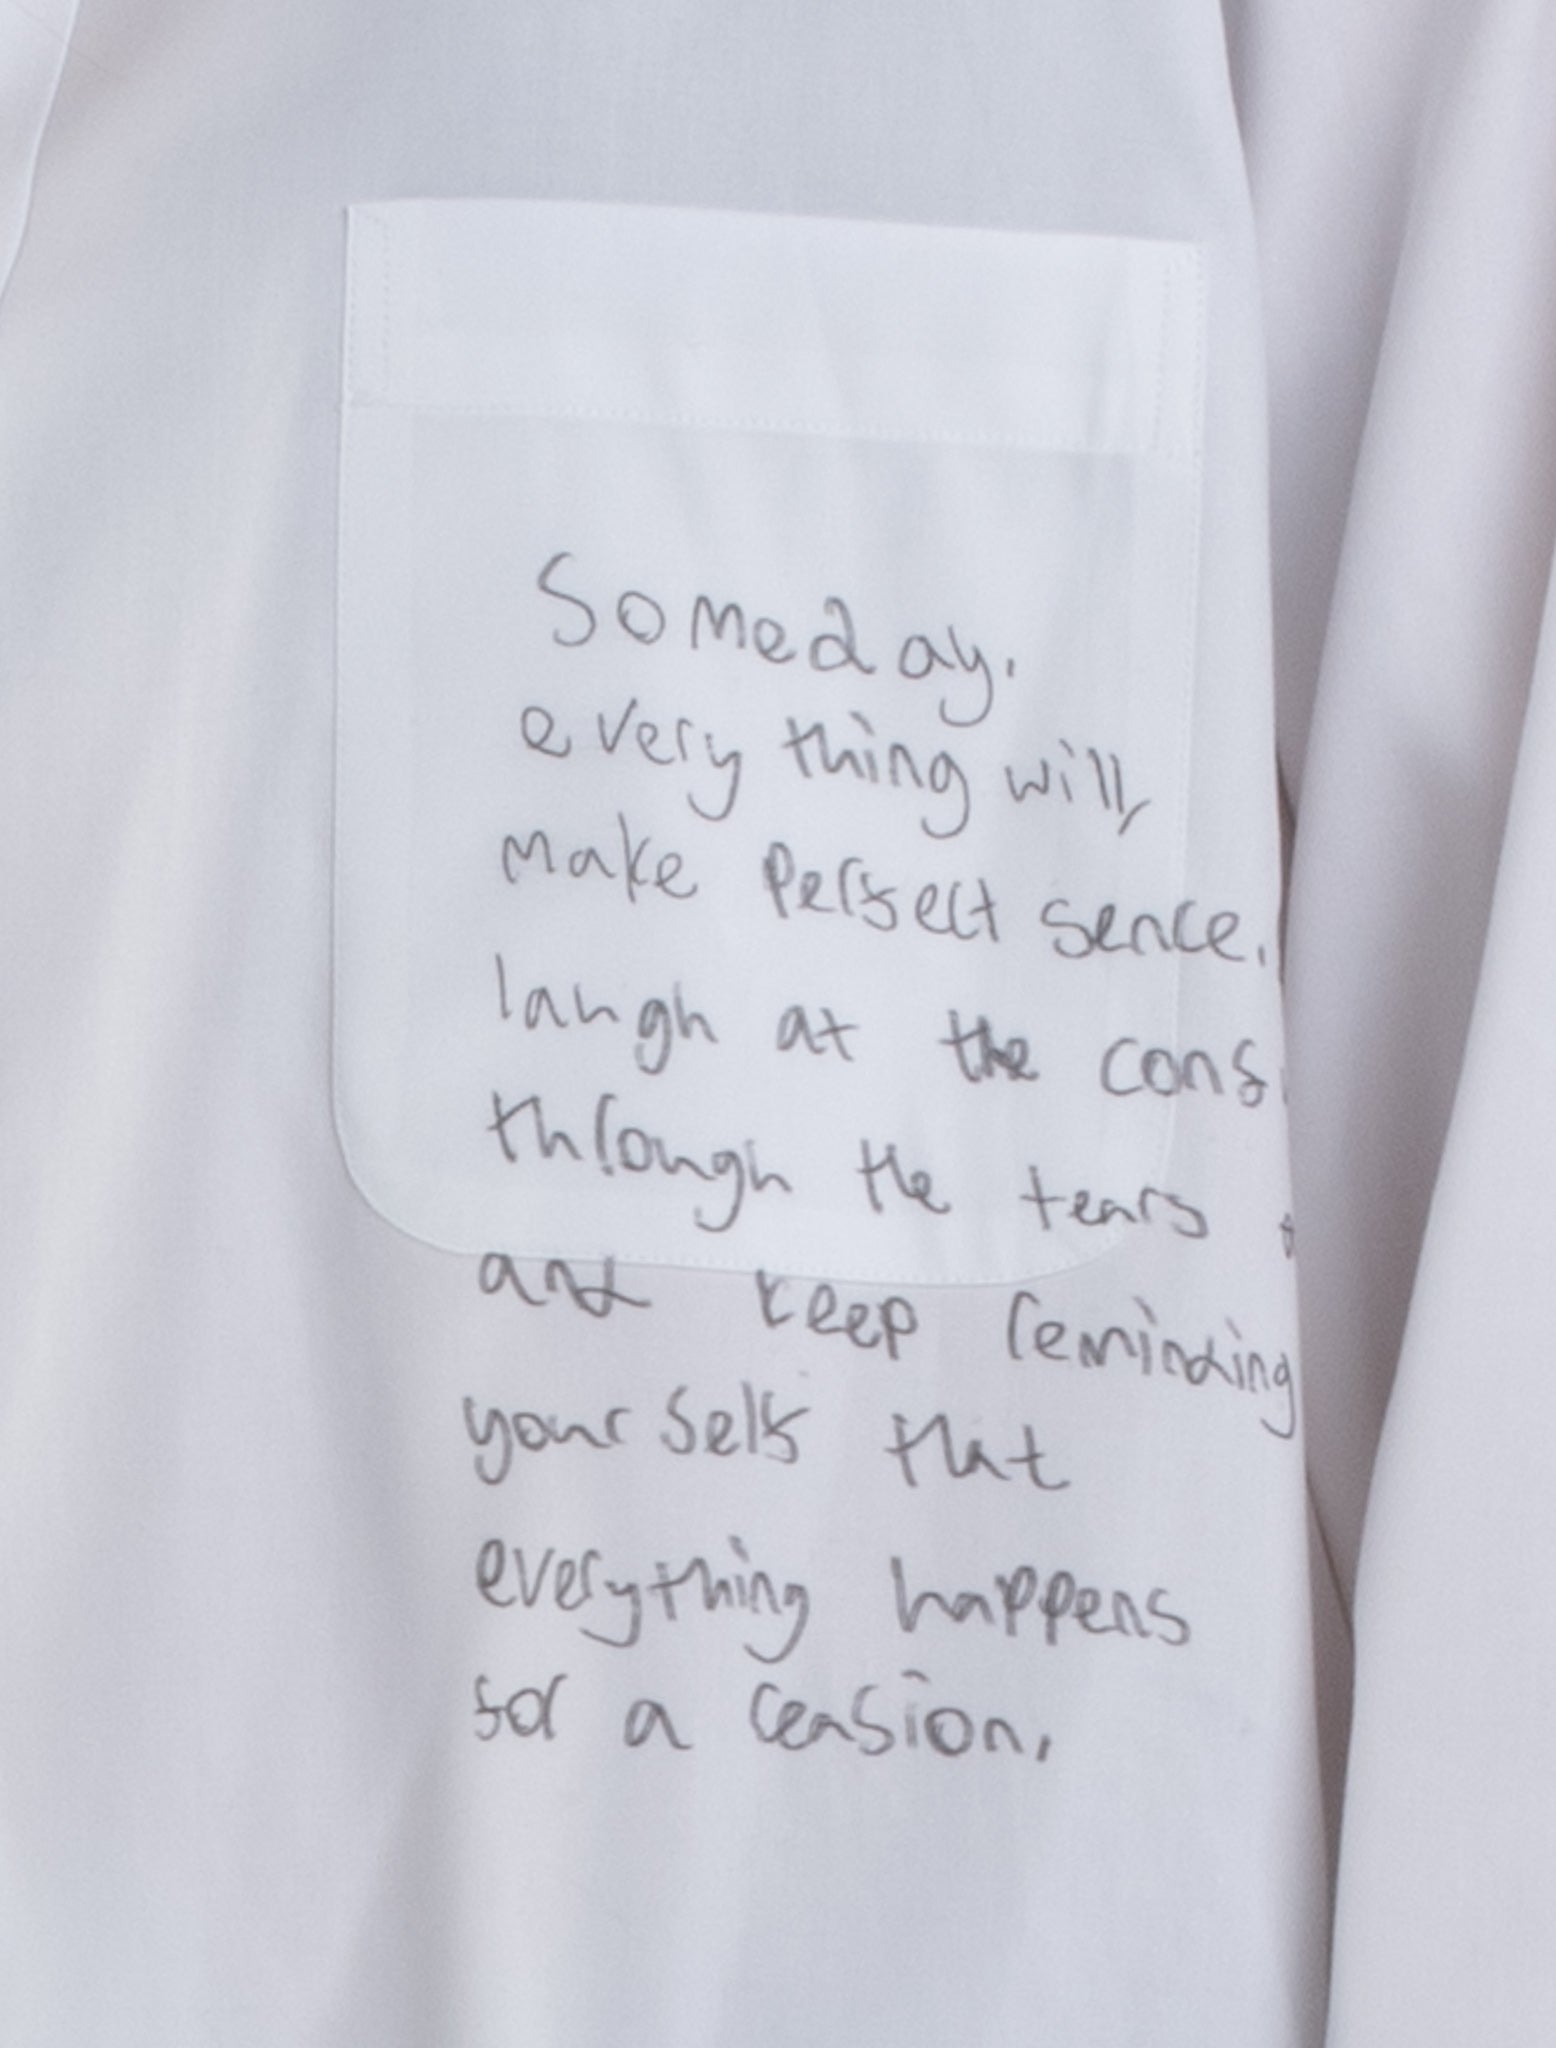 Someday.
every thing will,
make perfect sence.
laugh at the
through the tears
and keep reminding
your self that
everything happens
for a reasion,